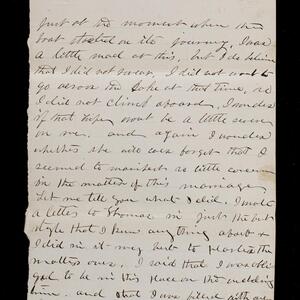 Just at the moment when the
boat started on its journey. I was
a little mad at this, but I do believe
that I did not swear, I did not want to
go across the lake at that time, so
I did not climb aboard. I wonder
if that wont be a little severe
on me. and again I wonder
whether she will ever forget that I
seemed to manifest so little concern
in the matter of this marriage
Let me tell you what I did. I wrote
a letter to Thomas in just the best
style that I knew any thing about &
I did in it my best to
matters over. I said that I was
to be in this place on the wedding
time. and that I was filled with